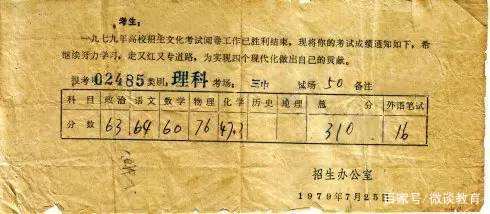 考生：
一九七九年高校招生文化考试阅卷工作已胜利结束，现将你的考试成绩通知如下，希
继续努力学习，走又红又专道路，为实现四个现代化做出自己的贡献。
报考号02485类别：理科 考场：三中 试场50 备注
科目 政治 语文 数学 物理 化学 历史 地理 总分 外语笔试
分数 63 64 60 76 47.3 310 16
招生办公室
1979年7月25日
百家号/微谈教育